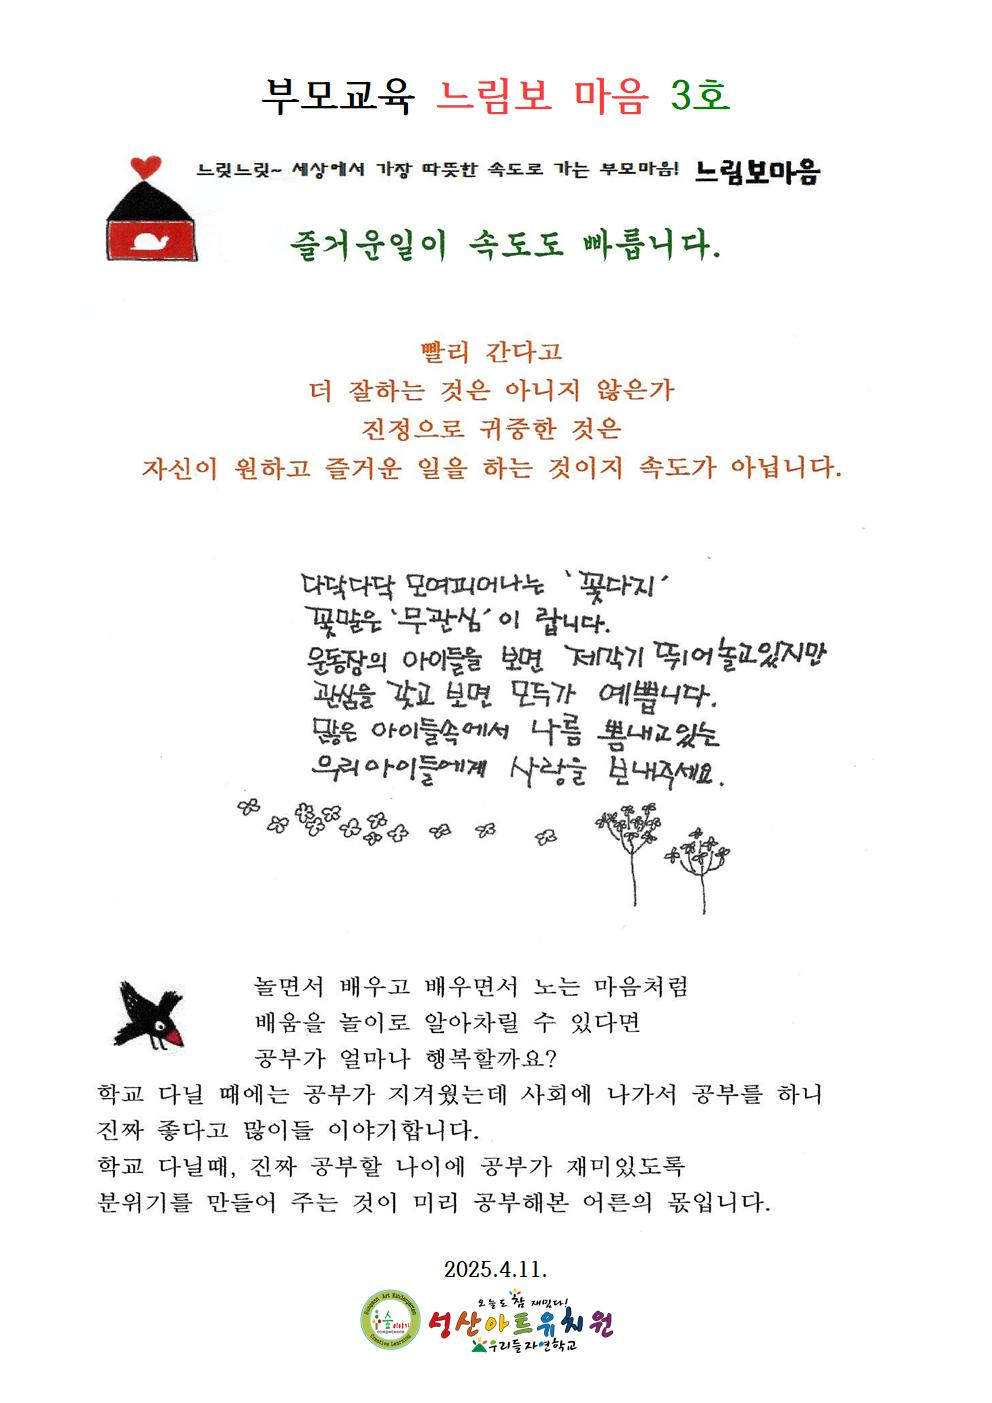 부모교육 느림보 마음 3호
느릿느릿~ 세상에서 가장 따뜻한 속도로 가는 부모마음! 느림보마음
즐거운일이 속도도 빠릅니다.
빨리 간다고
더 잘하는 것은 아니지 않은가
진정으로 귀중한 것은
자신이 원하고 즐거운 일을 하는 것이지 속도가 아닙니다.
다닥다닥 모여피어나는 '꽃다지'
꽃말은 '무관심'이 랍니다.
운동장의 아이들을 보면 제각기 뛰어놀고있지만
관심을 갖고 보면 모두가 예쁩니다.
많은 아이들속에서 나름 뽐내고있는
우리아이들에게 사랑을 보내주세요.
놀면서 배우고 배우면서 노는 마음처럼
배움을 놀이로 알아차릴 수 있다면
공부가 얼마나 행복할까요?
학교 다닐 때에는 공부가 지겨웠는데 사회에 나가서 공부를 하니
진짜 좋다고 많이들 이야기합니다.
학교 다닐때, 진짜 공부할 나이에 공부가 재미있도록
분위기를 만들어 주는 것이 미리 공부해본 어른의 몫입니다.
2025.4.11.
Sungsan Art Kindergarten
숲이야기
competence
Creative Learning
오늘도 참 재밌다!
성산아트유치원
우리들자연학교